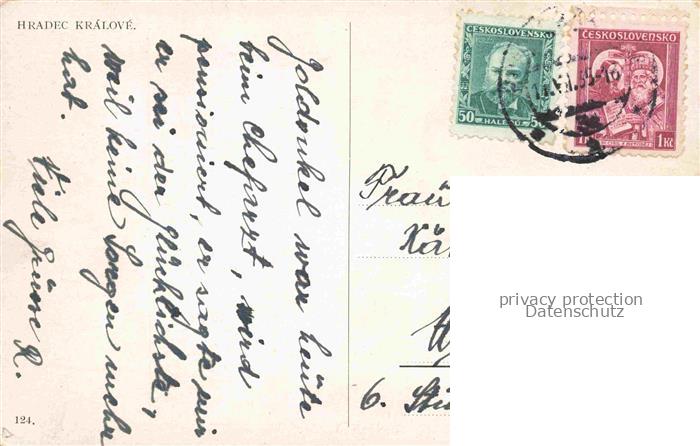 HRADEC KRÁLOVÉ.
Goldonkel war heute
beim Chefarzt, wird
pensioniert, er sagte mir
er sei der glücklichste,
weil keine Sorgen mehr
hat.
Viele Grüsse R.
124.
ČESKOSLOVENSKO
50 HALÉŘŮ 50
ČESKOSLOVENSKO
1Kč
Frau
Kä
W
6.
privacy protection
Datenschutz